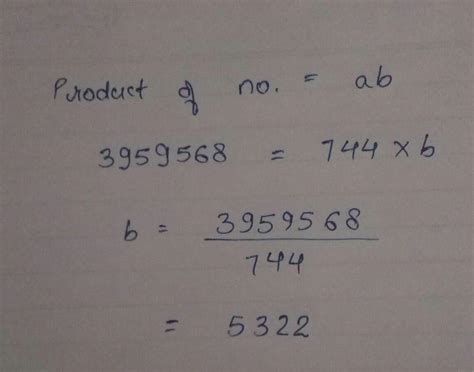 Product of no. = ab
3959568 = 744 × b
b = 3959568
744
= 5322